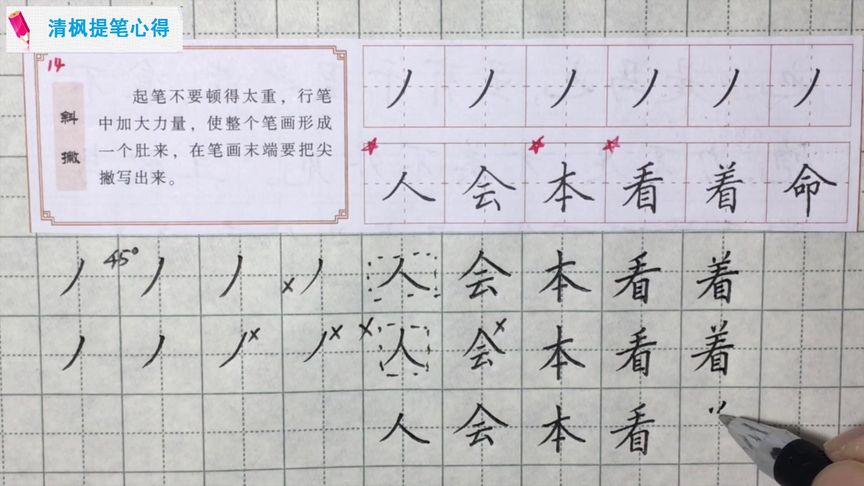 清枫提笔心得
14
斜撇
起笔不要顿得太重，行笔
中加大力量，使整个笔画形成
一个肚来，在笔画末端要把尖
撇写出来。
丿 丿 丿 丿 丿 丿
人 会 本 看 着 命
丿 45° 丿 丿 × 丿 人 会 本 看 着
丿 丿 丿 × 丿 × × 人 会 × 本 看 着
人 会 本 看